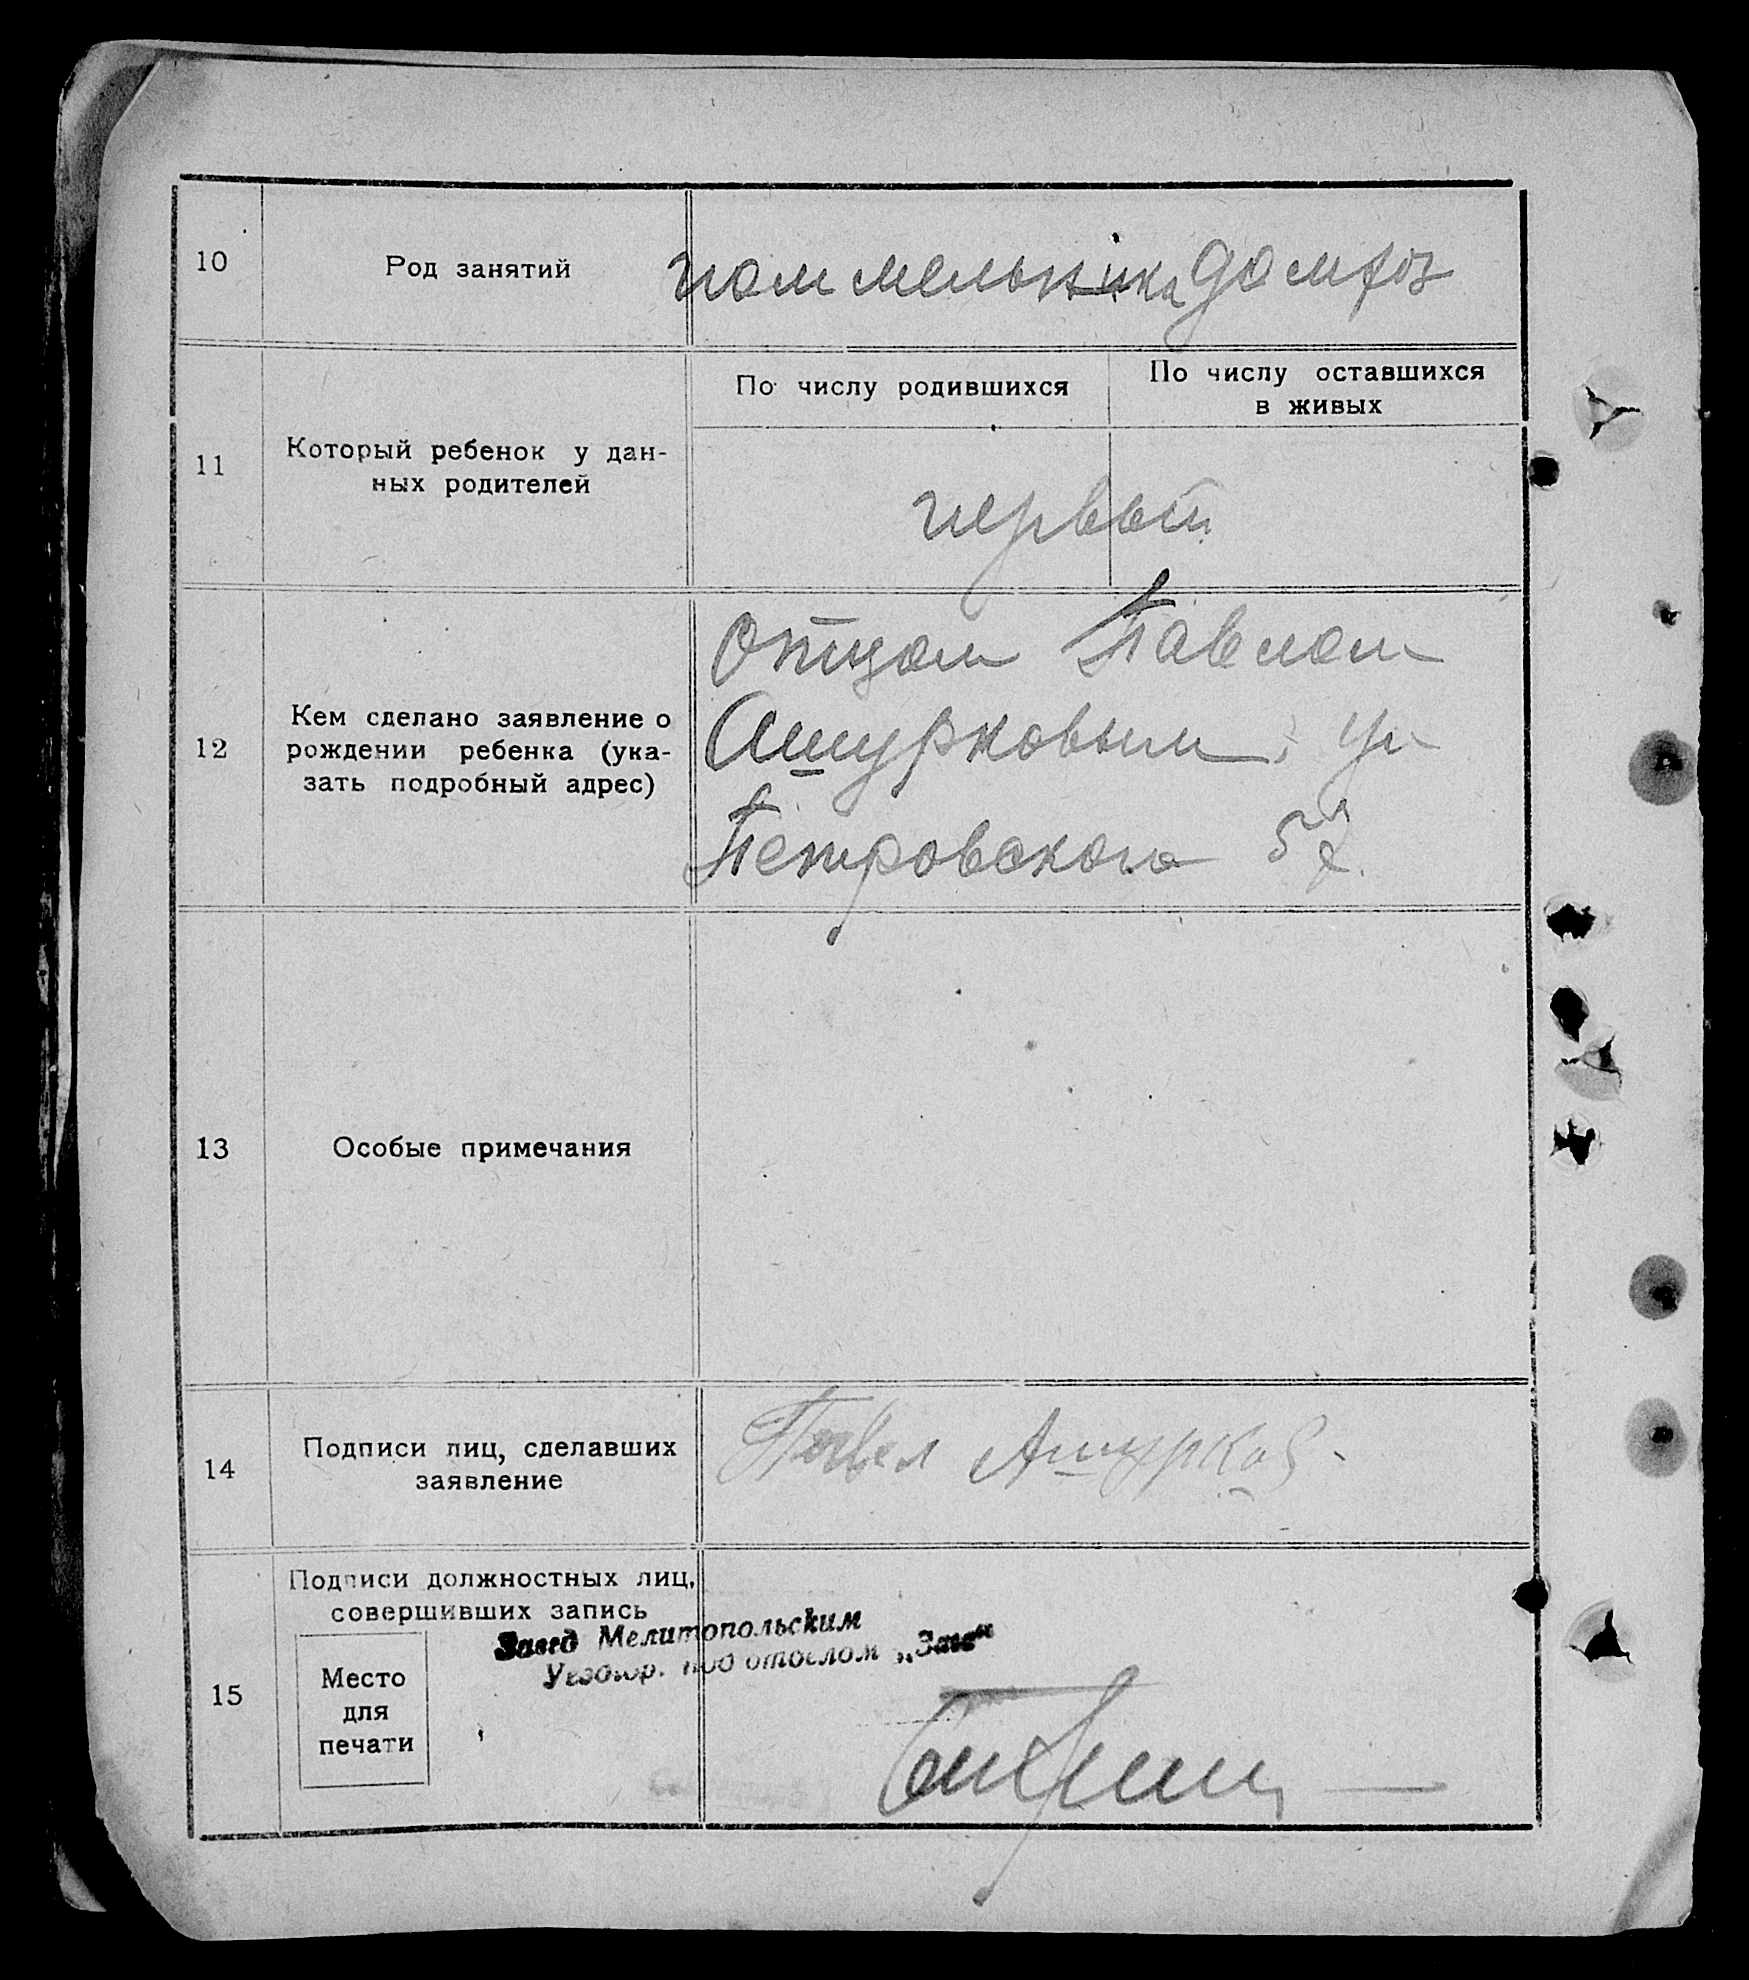 10
Род занятий
пом мельника домхоз
11
Который ребенок у дан-
ных родителей
По числу родившихся
По числу оставшихся
в живых
первый
12
Кем сделано заявление о
рождении ребенка (ука-
зать подробный адрес)
Отцом Павлом
Ашурковым, ул
Петровского 57
13
Особые примечания
14
Подписи лиц, сделавших
заявление
Павел Ашурков
15
Подписи должностных лиц,
совершивших запись
Завед Мелитопольским
под отделом „Загс“
Место
для
печати